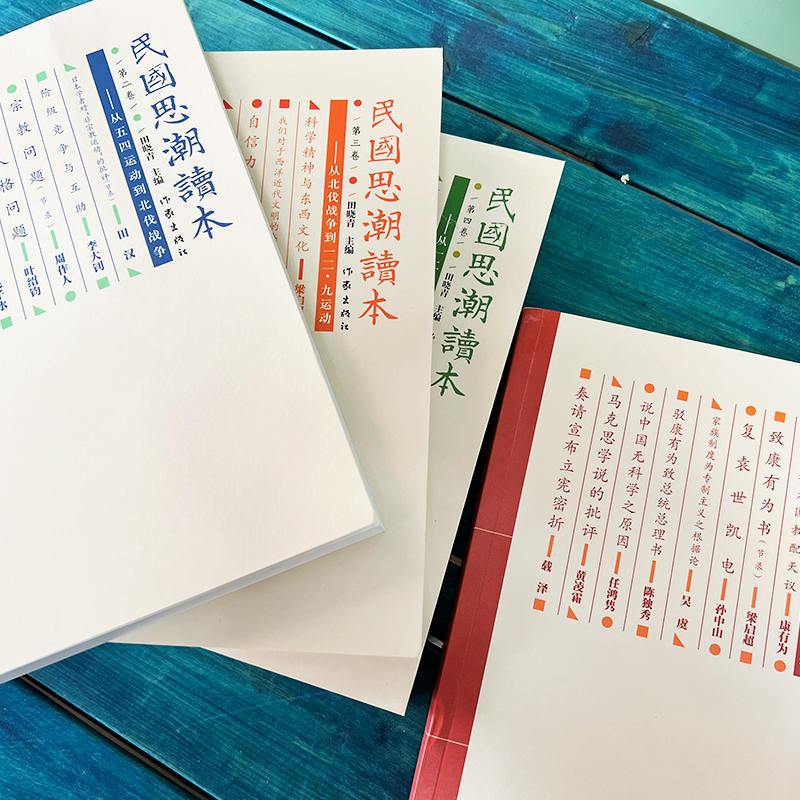 民國思潮讀本
第二卷
田晓青 主编
作家出版社
——从五四运动到北伐战争
日本学者对"非宗教运动"的批评(节录)
田汉
阶级竞争与互助
李大钊
宗教问题(节录)
周作人
格问题
叶绍钧
民國思潮讀本
第三卷
田晓青 主编
作家出版社
——从北伐战争到一二·九运动
科学精神与东西文化
梁启
我们对于西洋近代文明的
自信力
民國思潮讀本
第四卷
田晓青 主编
——从一二
配天议
康有为
致康有为书(节录)
梁启超
复袁世凯电
孙中山
家族制度为专制主义之根据论
吴虞
驳康有为致总统总理书
陈独秀
说中国无科学之原因
任鸿隽
马克思学说的批评
黄凌霜
奏请宣布立宪密折
载泽